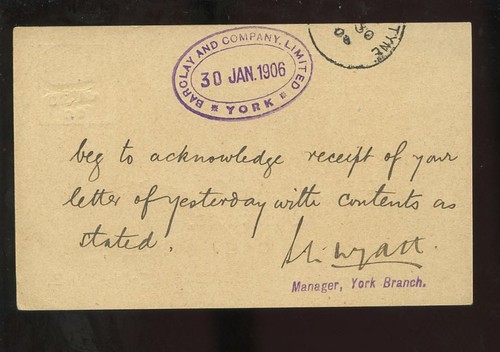 BARCLAY AND COMPANY, LIMITED
30 JAN. 1906
YORK
TYNE
beg to acknowledge receipt of your
letter of yesterday with contents as
stated.
Wyatt.
Manager, York Branch.